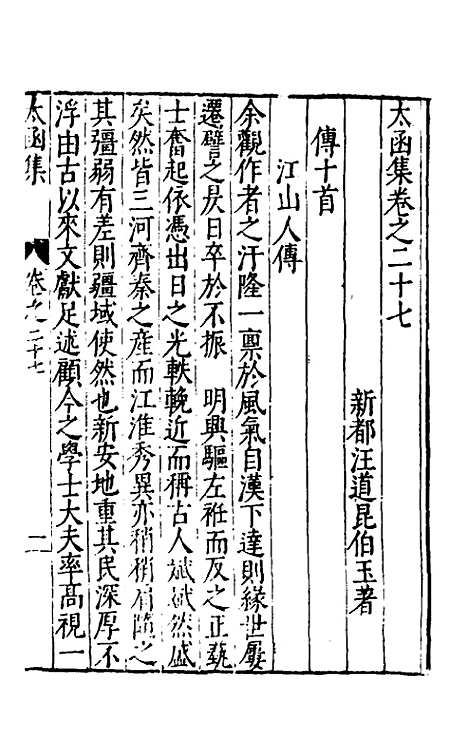 太函集卷之二十七
新都汪道昆伯玉著
傳十首
江山人傳
余觀作者之汙隆一禀於風氣自漢下達則緣世屢
遷譬之昃日卒於不振　明興驅左袵而反之正埶
士奮起依憑出日之光軼輓近而稱古人斌斌然盛
矣然皆三河齊秦之産而江淮秀異亦稍稍肩隨之
其彊弱有差則疆域使然也新安地重其民深厚不
浮由古以來文獻足述顧今之學士大夫率髙視一
太函集　卷之二十七　一